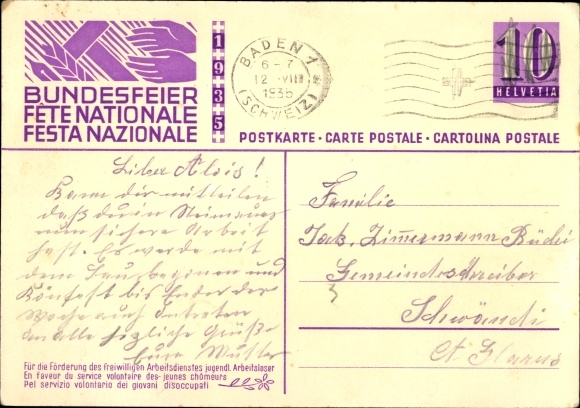 BUNDESFEIER
FÊTE NATIONALE
FESTA NAZIONALE
1935
BADEN 1
6-7
12. VIII
1935
(SCHWEIZ)
10
HELVETIA
POSTKARTE · CARTE POSTALE · CARTOLINA POSTALE
Liber Alois!
Kann dir mitteilen
daß du in
nun sichere Arbeit
hast. Es werde mit
dem beginnen und
könntest bis Ender der
Woche auch antreten
an alle Grüße
Eure Mutter
Familie
Jak. Zimmermann Büchi
Gemeindeschreiber
Schwändi
Ct. Glarus
Für die Förderung des freiwilligen Arbeitsdienstes jugendl. Arbeitsloser
En faveur du service volontaire des jeunes chômeurs
Pel servizio volontario dei giovani disoccupati